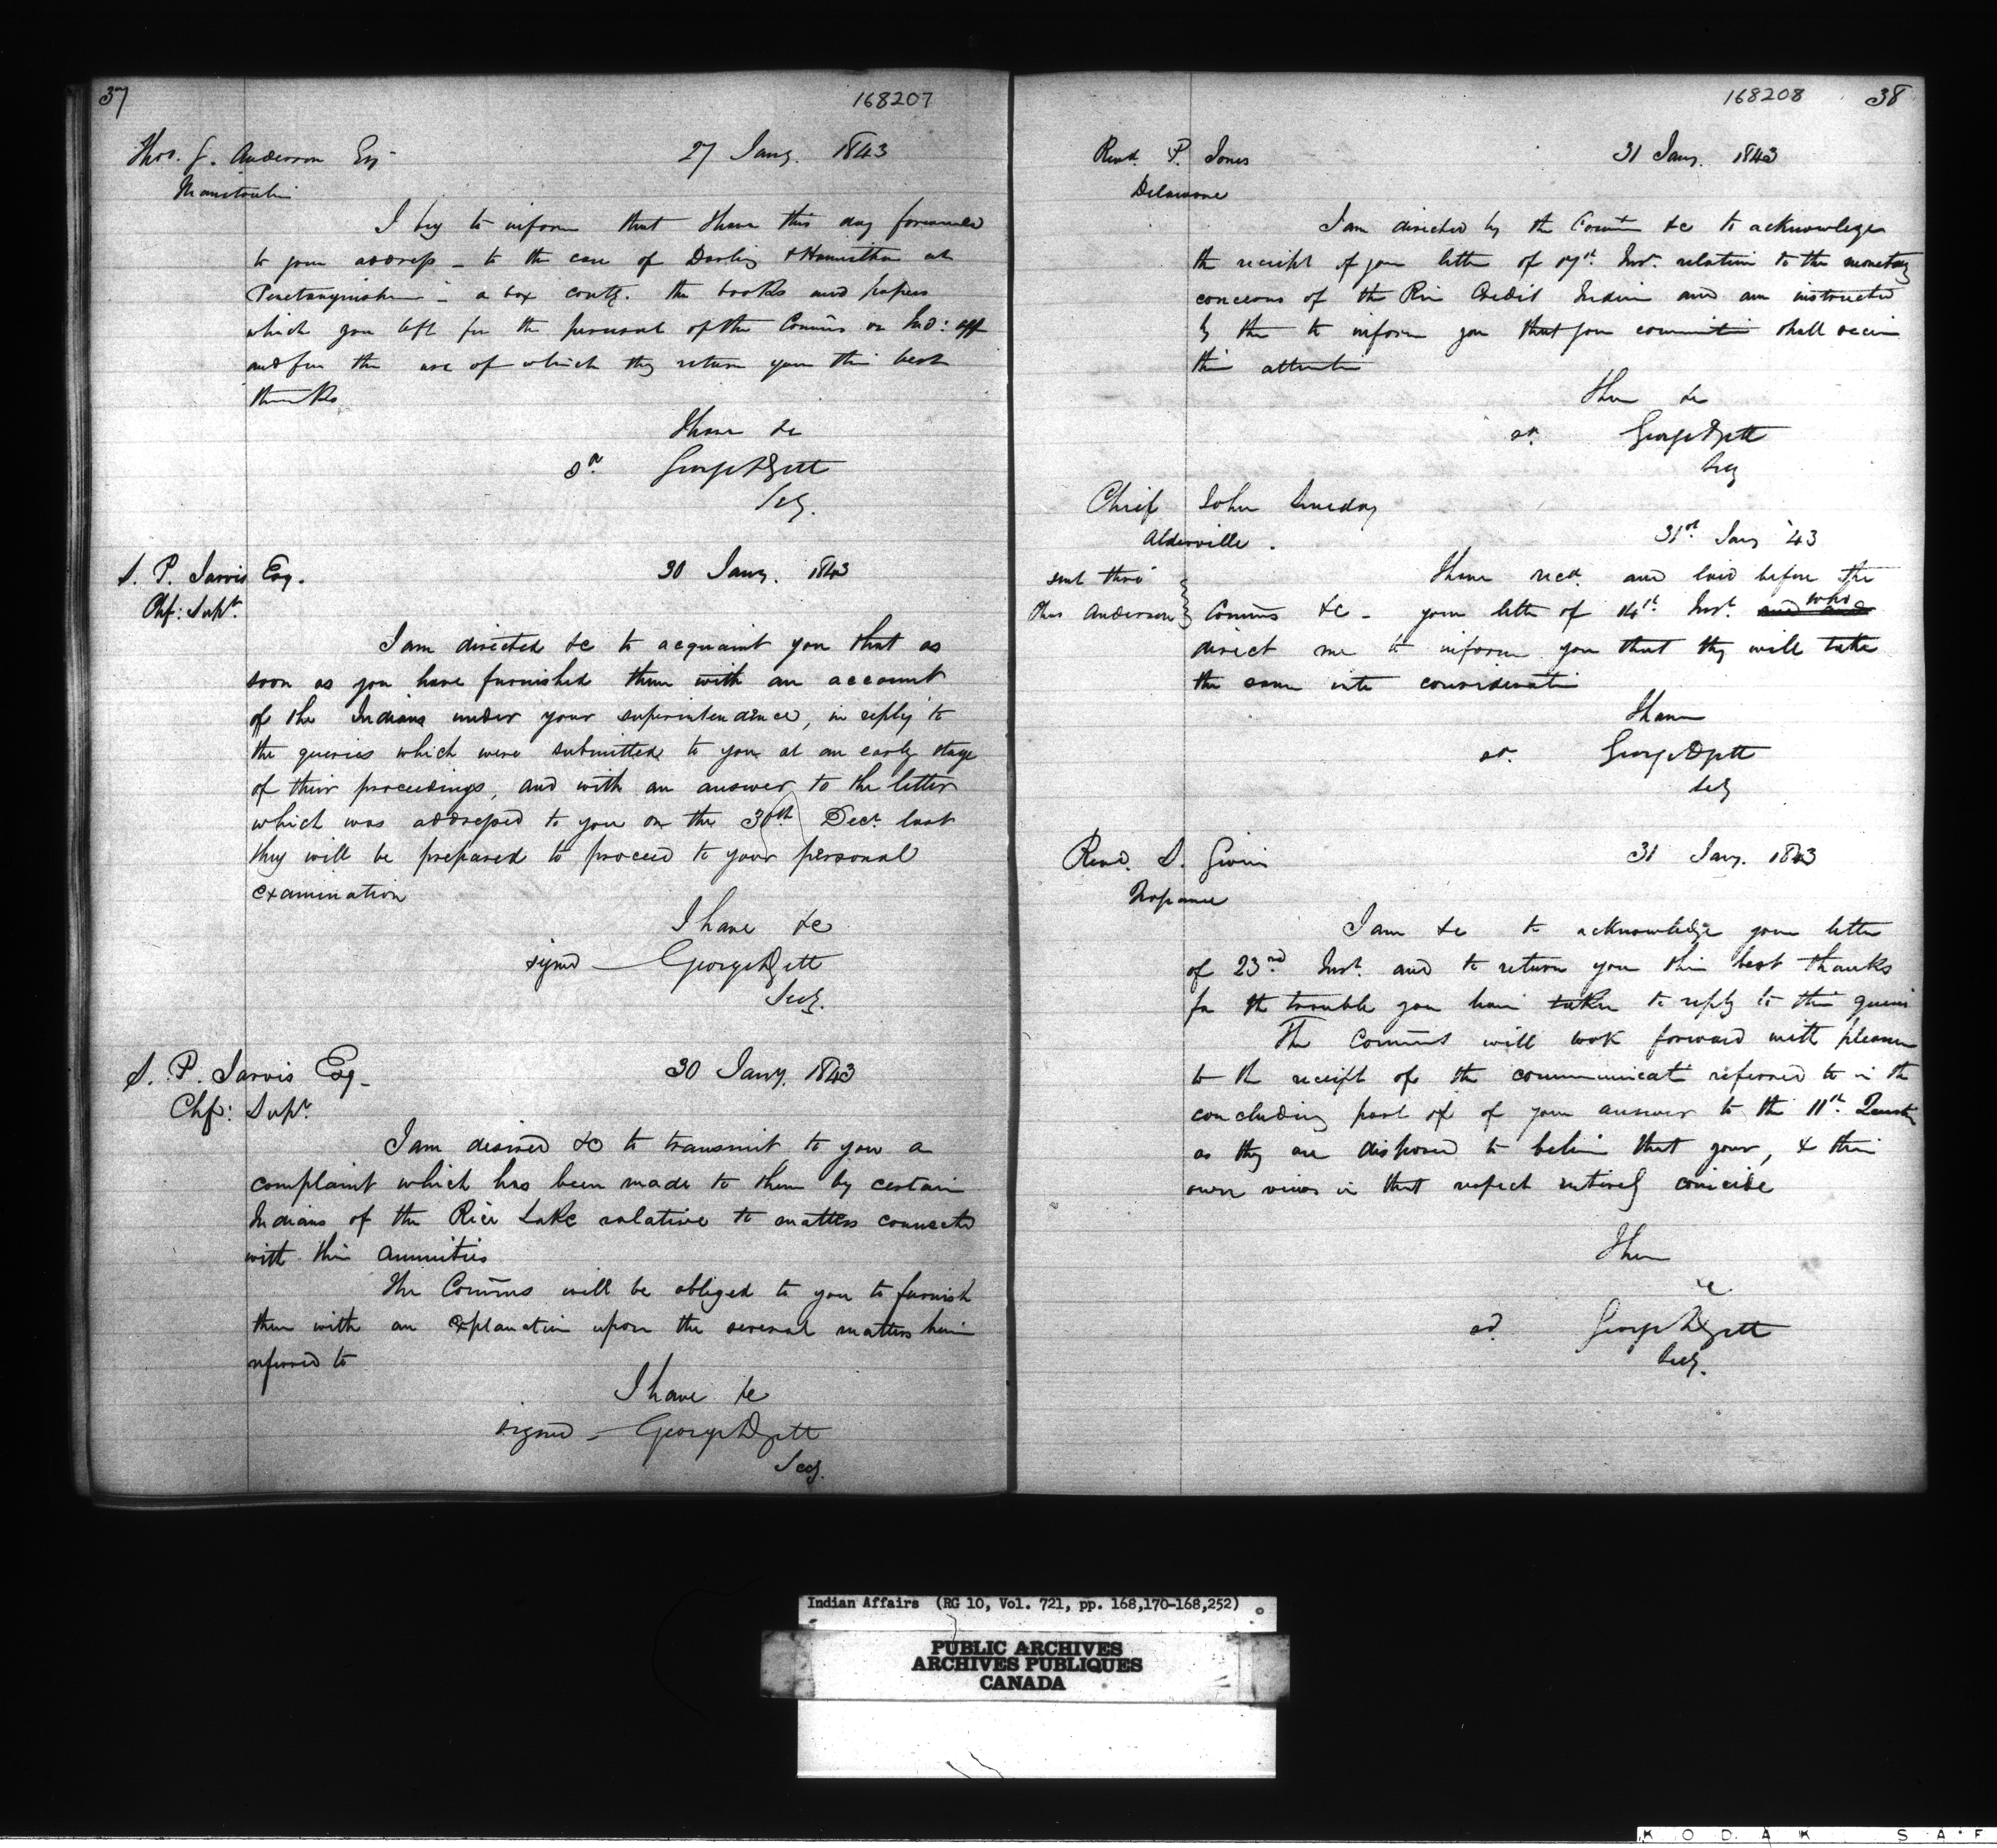 37
168207
Thos. G. Anderson Esq
27 Jany. 1843
Manetoulin
I beg to inform that I have this day forwarded
to your address - to the care of Darling & Hamilton at
Penetanguishene - a box contg. the books and papers
which you left for the perusal of the Comms on Ind: aff
and for the use of which they return you their best
thanks
I have &c
sd George
Secy.
S. P. Jarvis Esq.
30 Jany. 1843
Chf: Supt.
I am directed &c to acquaint you that as
soon as you have furnished them with an account
of the Indians under your superintendence, in reply to
the queries which were submitted to you at an early stage
of their proceedings, and with an answer to the letter
which was addressed to you on the 30th Decr. last
they will be prepared to proceed to your personal
examination
I have &c
signed - George
Secy.
S. P. Jarvis Esq-
30 Jany. 1843
Chf: Supt.
I am desired &c to transmit to you a
complaint which has been made to them by certain
Indians of the Rice Lake relative to matters connected
with their annuities
The Comms will be obliged to you to furnish
them with an explanation upon the several matters herein
referred to
I have &c
signed - George
Secy.
168208
38
Revd. P. Jones
31 Jany. 1843
Delaware
I am directed by the Comms &c to acknowledge
the receipt of your letter of Inst. relative to the monetary
concerns of the River Credit Indian and am instructed
by them to inform you that your shall receive
their attention
I have &c
sd. George
Secy
Chief John Sunday
Alderville.
31st Jany '43
sent thro'
Thos Anderson
I have recd. and laid before the
Comms &c - your letter of 14th Inst. who
direct me to inform you that they will take
the same into consideration
I have
sd. George
Secy
Revd. S. Givins
31 Jany. 1843
Napanee
I am &c to acknowledge your letter
of 23rd Inst. and to return you their best thanks
for the trouble you have taken to reply to their queries
The Comms will look forward with pleasure
to the receipt of the communicatn referred to in the
concluding part of of your answer to the 11th
as they are disposed to believe that your, & their
own views in that respect entirely coincide
I have
&c
sd. George
Secy.
Indian Affairs (RG 10, Vol. 721, pp. 168,170-168,252)
PUBLIC ARCHIVES
ARCHIVES PUBLIQUES
CANADA
KODAK SAF